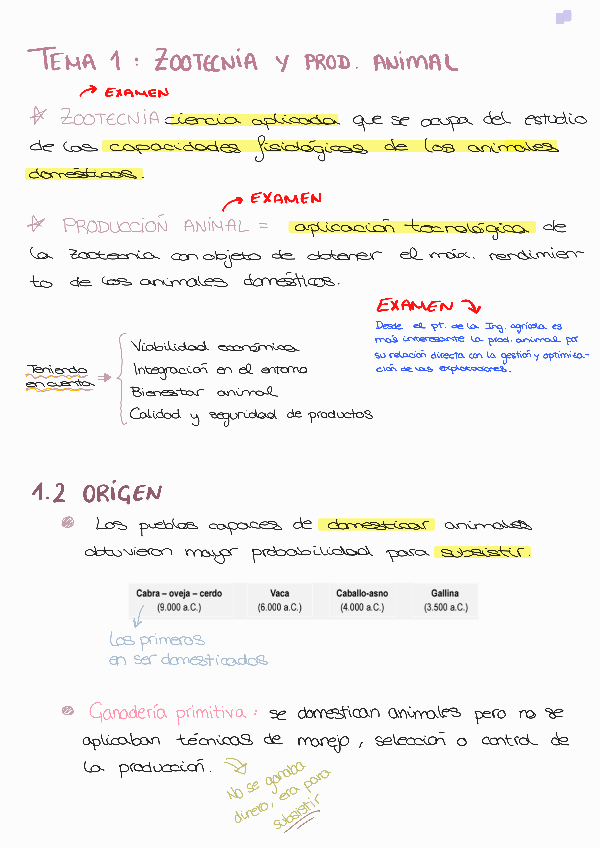 TEMA 1 : ZOOTECNIA Y PROD. ANIMAL
→ EXAMEN
☆ ZOOTECNIA ciencia aplicada que se ocupa del estudio
de las capacidades fisiológicas de los animales
domésticos.
→ EXAMEN
☆ PRODUCCIÓN ANIMAL = aplicación tecnológica de
la zootecnia con objeto de obtener el máx. rendimien-
to de los animales domésticos.
EXAMEN
Desde el pt. de la Ing. agrícola es
más interesante la prod. animal por
su relación directa con la gestión y optimiza-
ción de las explotaciones.
Teniendo
en cuenta →
Viabilidad económica
Integración en el entorno
Bienestar animal
Calidad y seguridad de productos
1.2 ORÍGEN
Los pueblos capaces de domesticar animales
obtuvieron mayor probabilidad para subsistir.
Cabra – oveja – cerdo Vaca Caballo-asno Gallina
(9.000 a.C.) (6.000 a.C.) (4.000 a.C.) (3.500 a.C.)
Los primeros
en ser domesticados
Ganadería primitiva: se domestican animales pero no se
aplicaban técnicas de manejo, selección o control de
la producción.
No se ganaba
dinero, era para
subsistir